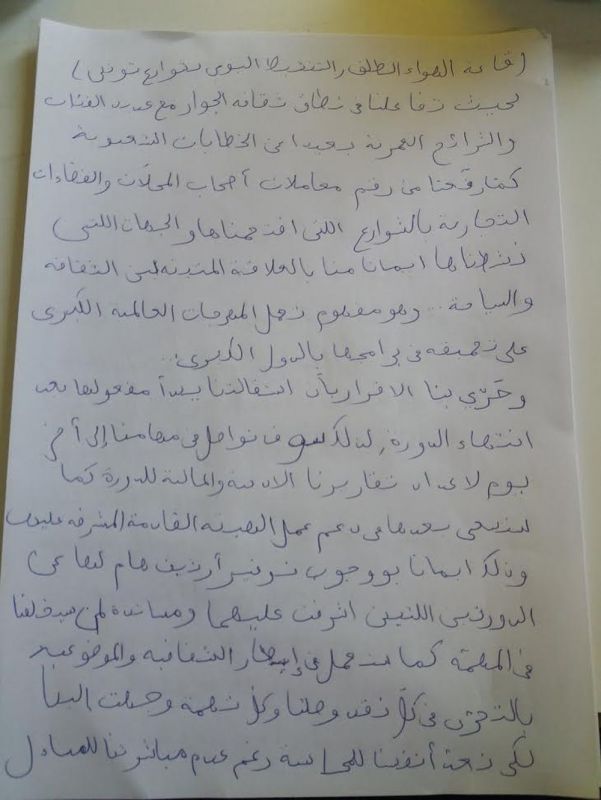 (قاعة الهواء الطلق والتنشيط اليومي بشوارع تونس)
بحيث تفاعلنا في نطاق ثقافة الجوار مع عديد الفئات
والشرائح العمرية بعيدا عن الخطابات الشعبوية
كما رفّعنا من رقم معاملات أصحاب المحلات والفضاءات
التجارية بالشوارع اللتي اقتحمناها والجهات اللتي
نشطناها ايمانا منا بالعلاقة المتينة بين الثقافة
والسياحة .. وهو مفهوم تعمل المهرجانات العالمية الكبرى
على تضمينه في برامجها بالدول الكبرى ..
وحَرّي بنا الاقرار بأن استقالتنا يبدأ مفعولها بعد
انتهاء الدورة, لذلك سوف نواصل في مهامنا إلى آخر
يوم لاعداد تقاريرنا الادبية والمالية للدورة كما
سنسعى بعدها في دعم عمل الهيئة القادمة المشرفة عليها
وذلك ايمانا بوجوب توفير أرشيف هام لها عن
الدورتين اللتين اشرفت عليهما ومساندة لمن سيخلفنا
في المهمة كما سنعمل في إطار الشفافية والموضوعية
بالتحري في كلّ نقد وصلنا وكل تهمة وجهت الينا
لكي نضع أنفسنا للمحاسبة رغم عدم مباشرتنا للمسائل